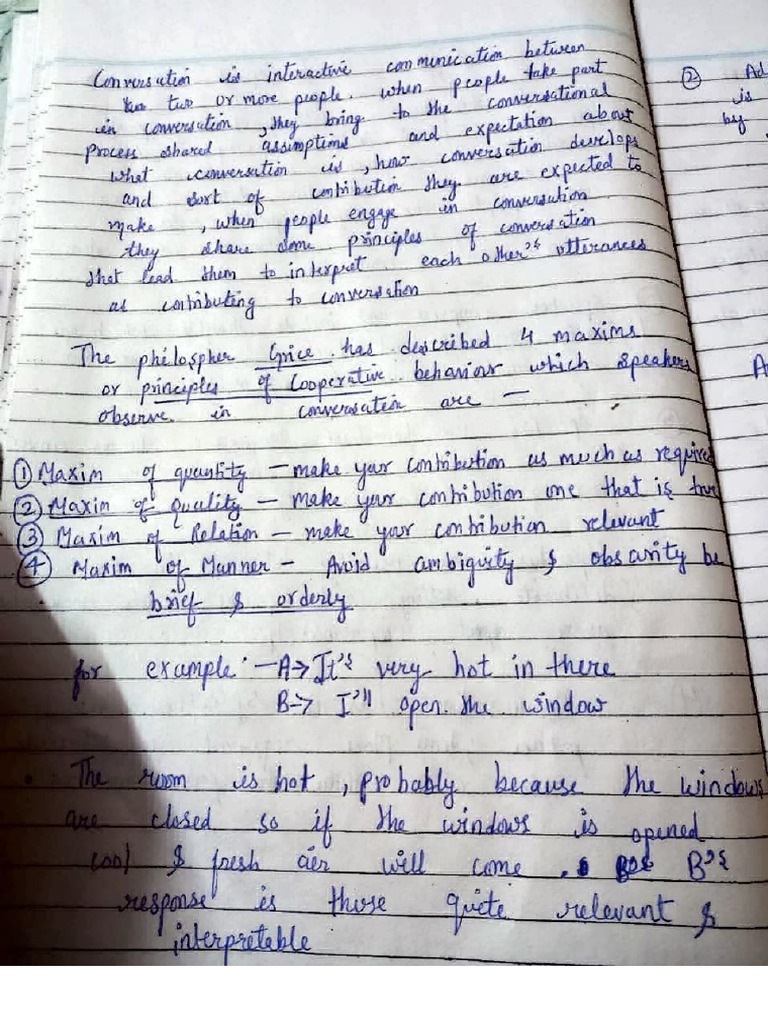 Conversation is interactive communication between
two or more people. when people take part
in conversation, they bring to the conversational
process shared assimptions and expectation about
what conversation is, how conversation develops
and sort of contribution they are expected to
make, when people engage in conversation
they share some principles of conversation
that lead them to interpret each other's utterances
as contributing to conversation
The philospher Grice has described 4 maxims
or principles of Cooperative behaviour which speakers
observe in conversation are —
① Maxim of quantity – make your contribution as much as required
② Maxim of quality – make your contribution one that is true
③ Maxim of Relation – make your contribution relevant
④ Maxim of Manner – Avoid ambiguity & obsarity be
brief & orderly
for example – A → It's very hot in there
B → I'll open the window
The room is hot, probably because the windows
are closed so if the windows is opened
cool & fresh aier will come. B's
response is thuse quite relevant &
interpretable
② Ad
is
by
A